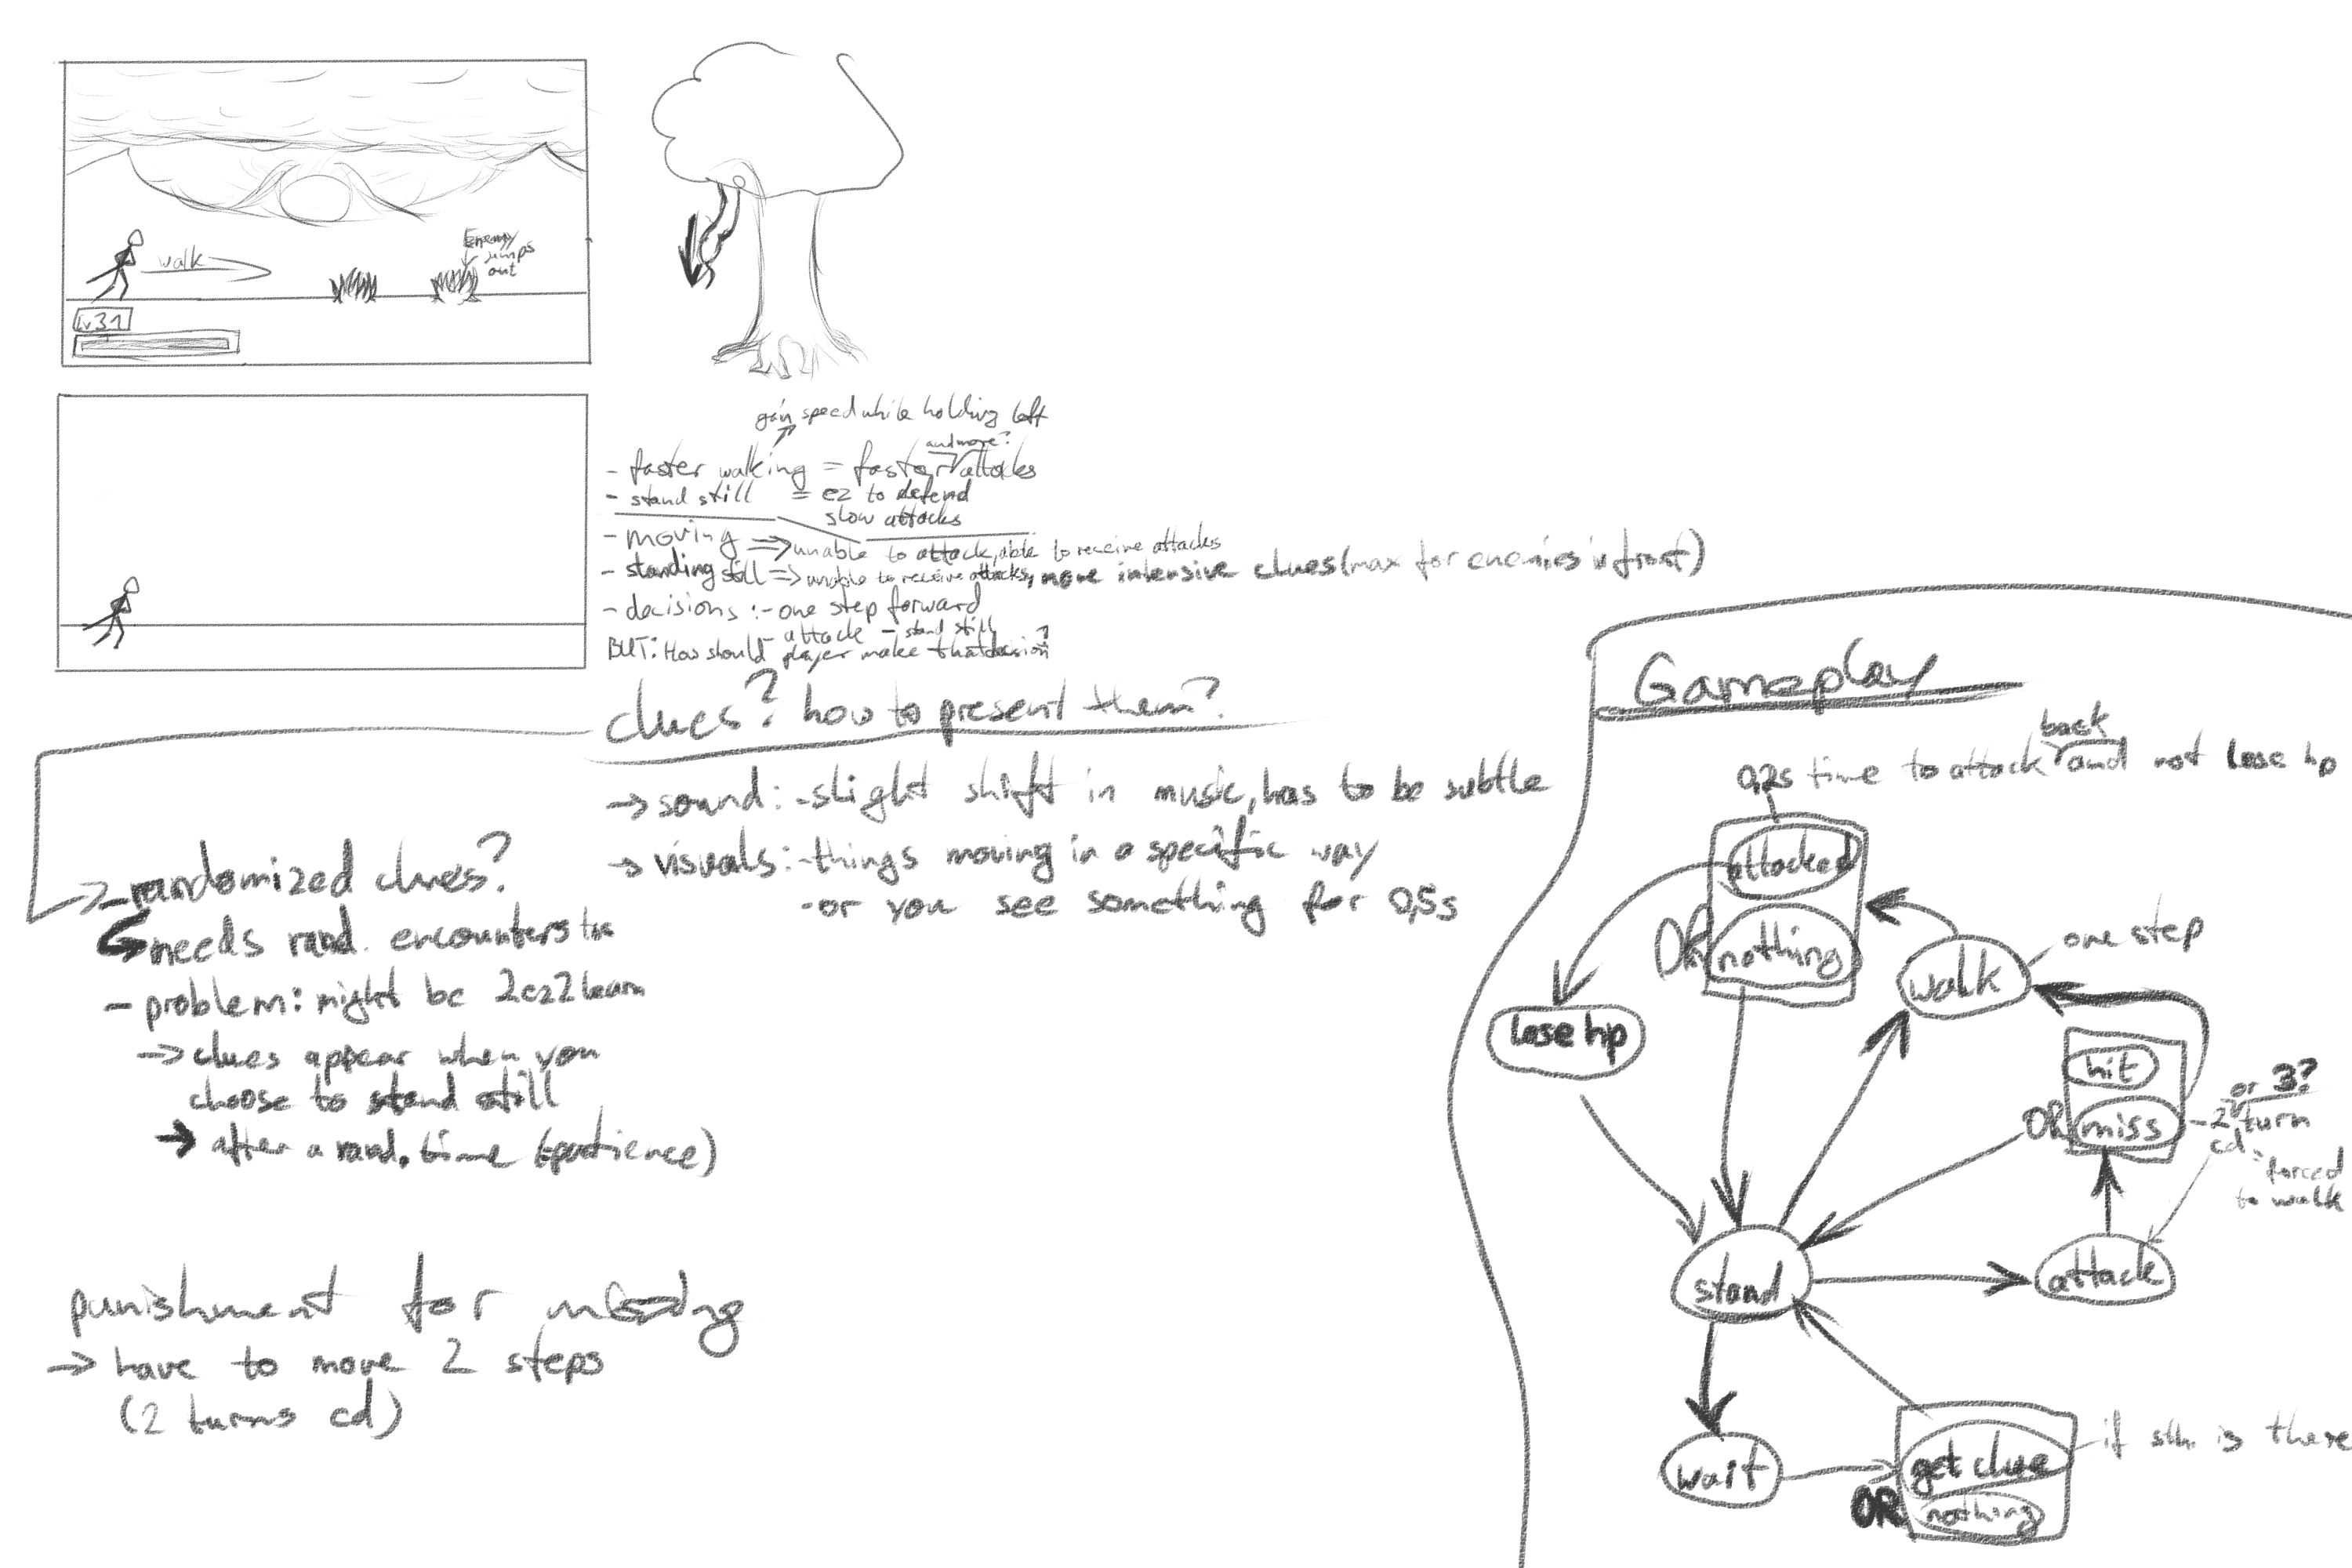 walk
Enemy
jumps
out
Lv31
gain speed while holding left
and more?
- faster walking = faster attacks
- stand still = ez to defend
slow attacks
- moving => unable to attack, able to receive attacks
- standing still => unable to receive attacks, more intensive clues (max for enemies in front)
- decisions : - one step forward
- attack - stand still
BUT: How should player make that decision?
clues? how to present them?
-> sound: - slight shift in music, has to be subtle
-> visuals: - things moving in a specific way
- or you see something for 0,5s
-> - randomized clues?
needs rand. encounters too
- problem: might be 2ez2learn
-> clues appear when you
choose to stand still
-> after a rand. time (patience)
punishment for missing
-> have to move 2 steps
(2 turns cd)
Gameplay
back
0,2s time to attack and not lose hp
attacked
OR nothing
walk
one step
lose hp
hit
OR miss
or 3?
- 2 turn
cd =
forced
to walk
stand
attack
wait
get clue
if sth. is there
OR nothing